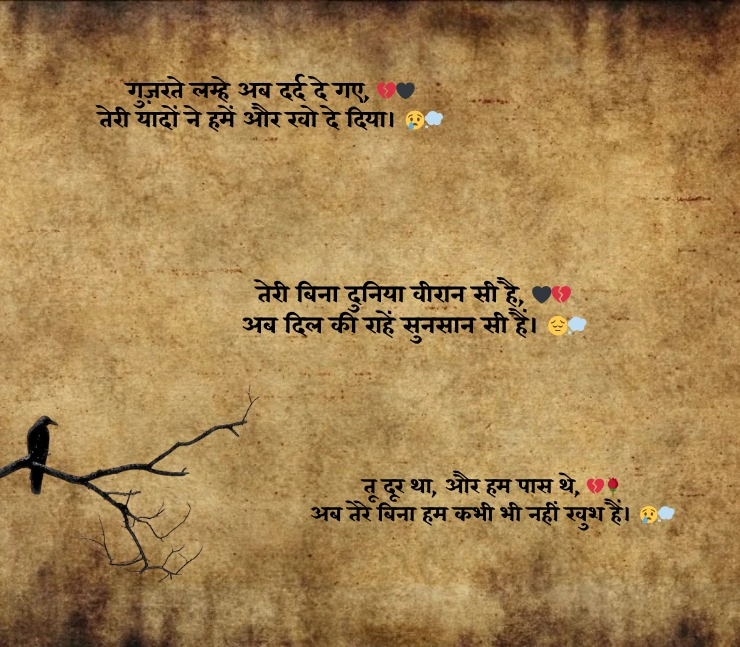 गुज़रते लम्हे अब दर्द दे गए, 💔🖤
तेरी यादों ने हमें और खो दे दिया। 😢💭
तेरी बिना दुनिया वीरान सी है, 🖤💔
अब दिल की राहें सुनसान सी हैं। 😔💭
तू दूर था, और हम पास थे, 💔🌹
अब तेरे बिना हम कभी भी नहीं खुश हैं। 😢💭